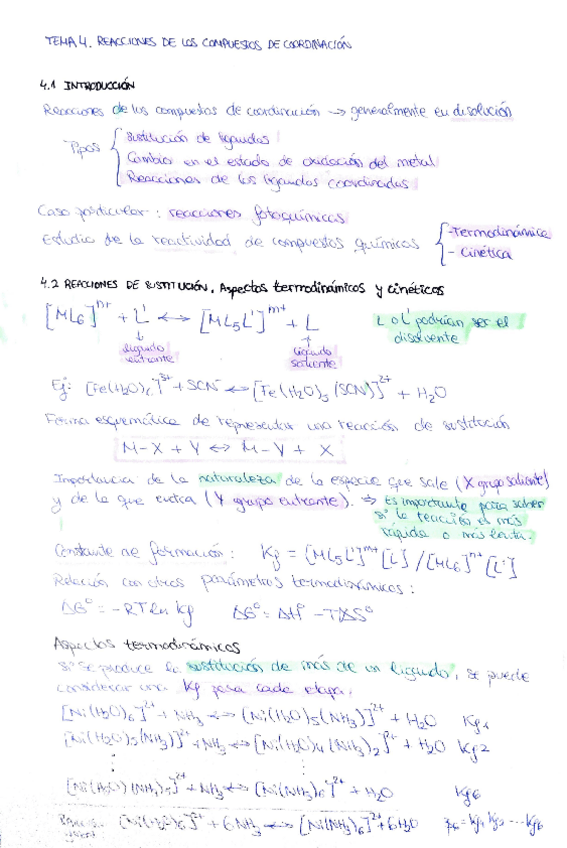 TEMA 4. REACCIONES DE LOS COMPUESTOS DE COORDINACIÓN
4.1 INTRODUCCIÓN
Reacciones de los compuestos de coordinación → generalmente en disolución
Tipos { Sustitución de ligandos
Cambio en el estado de oxidación del metal
Reacciones de los ligandos coordinados
Caso particular: reacciones fotoquímicas
Estudio de la reactividad de compuestos químicos { - Termodinámica
- Cinética
4.2 REACCIONES DE SUSTITUCIÓN. Aspectos termodinámicos y cinéticos
[ML6]^n+ + L' ↔ [ML5L']^m+ + L
L o L' podrían ser el disolvente
↓ ligando entrante
↑ ligando saliente
Ej: [Fe(H2O)6]^3+ + SCN^- ↔ [Fe(H2O)5(SCN)]^2+ + H2O
Forma esquemática de representar una reacción de sustitución
M-X + Y ↔ M-Y + X
Importancia de la naturaleza de la especie que sale (X grupo saliente)
y de la que entra (Y grupo entrante). ⇒ Es importante para saber
si la reacción es más
rápida o más lenta.
Constante de formación: Kf = [ML5L']^m+ [L] / [ML6]^n+ [L']
Relación con otros parámetros termodinámicos:
ΔG° = -RT ln Kf ΔG° = ΔH° - TΔS°
Aspectos termodinámicos
Si se produce la sustitución de más de un ligando, se puede
considerar una Kf para cada etapa.
[Ni(H2O)6]^2+ + NH3 ↔ [Ni(H2O)5(NH3)]^2+ + H2O Kf1
[Ni(H2O)5(NH3)]^2+ + NH3 ↔ [Ni(H2O)4(NH3)2]^2+ + H2O Kf2
⋮ ⋮
[Ni(H2O)(NH3)5]^2+ + NH3 ↔ [Ni(NH3)6]^2+ + H2O Kf6
[Ni(H2O)6]^2+ + 6NH3 ↔ [Ni(NH3)6]^2+ + 6H2O β6 = Kf1 Kf2 ... Kf6